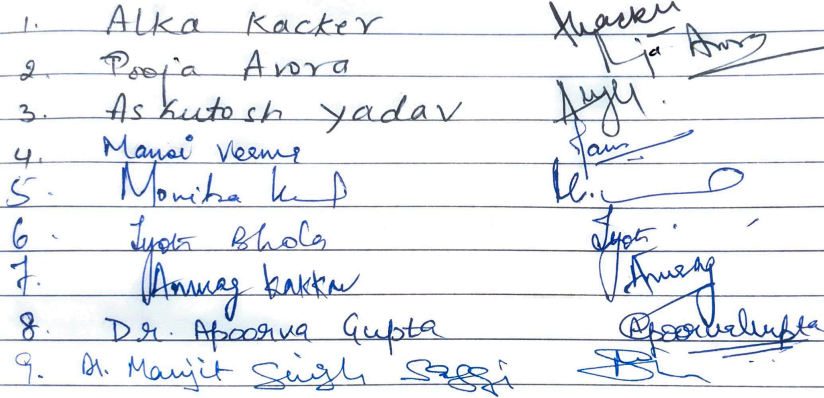 1. Alka Kacker
2. Pooja Arora
3. Askutosh Yadav
4. Manoj Verma
5. Monika
6. Jyoti Bhola Jyoti
7. Anurag Kakkar Anurag
8. Dr. Apoorva Gupta Apoorva Gupta
9. Dr. Manjit Singh Saggi